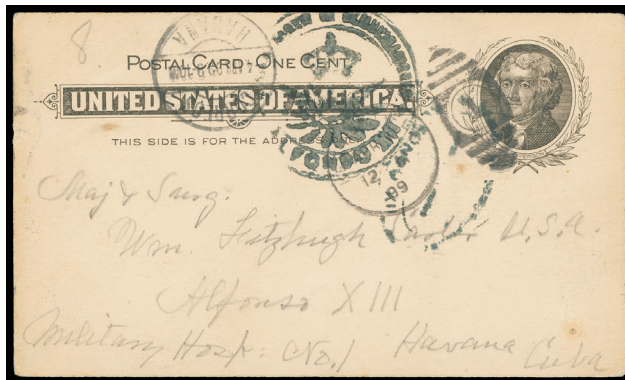 8
POSTAL CARD - ONE CENT
HABANA
UNITED STATES OF AMERICA.
THIS SIDE IS FOR THE ADDRESS
12
99
Maj & Surg.
Wm. Fitzhugh Carter U.S.A.
Alfonso XIII
Military Hosp: No. 1 Havana Cuba